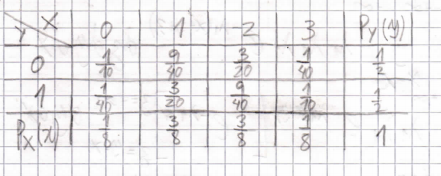 Y X 0 1 2 3 P_Y(y)
0 1/10 9/40 3/20 1/40 1/2
1 1/40 3/20 9/40 1/10 1/2
P_X(x) 1/8 3/8 3/8 1/8 1